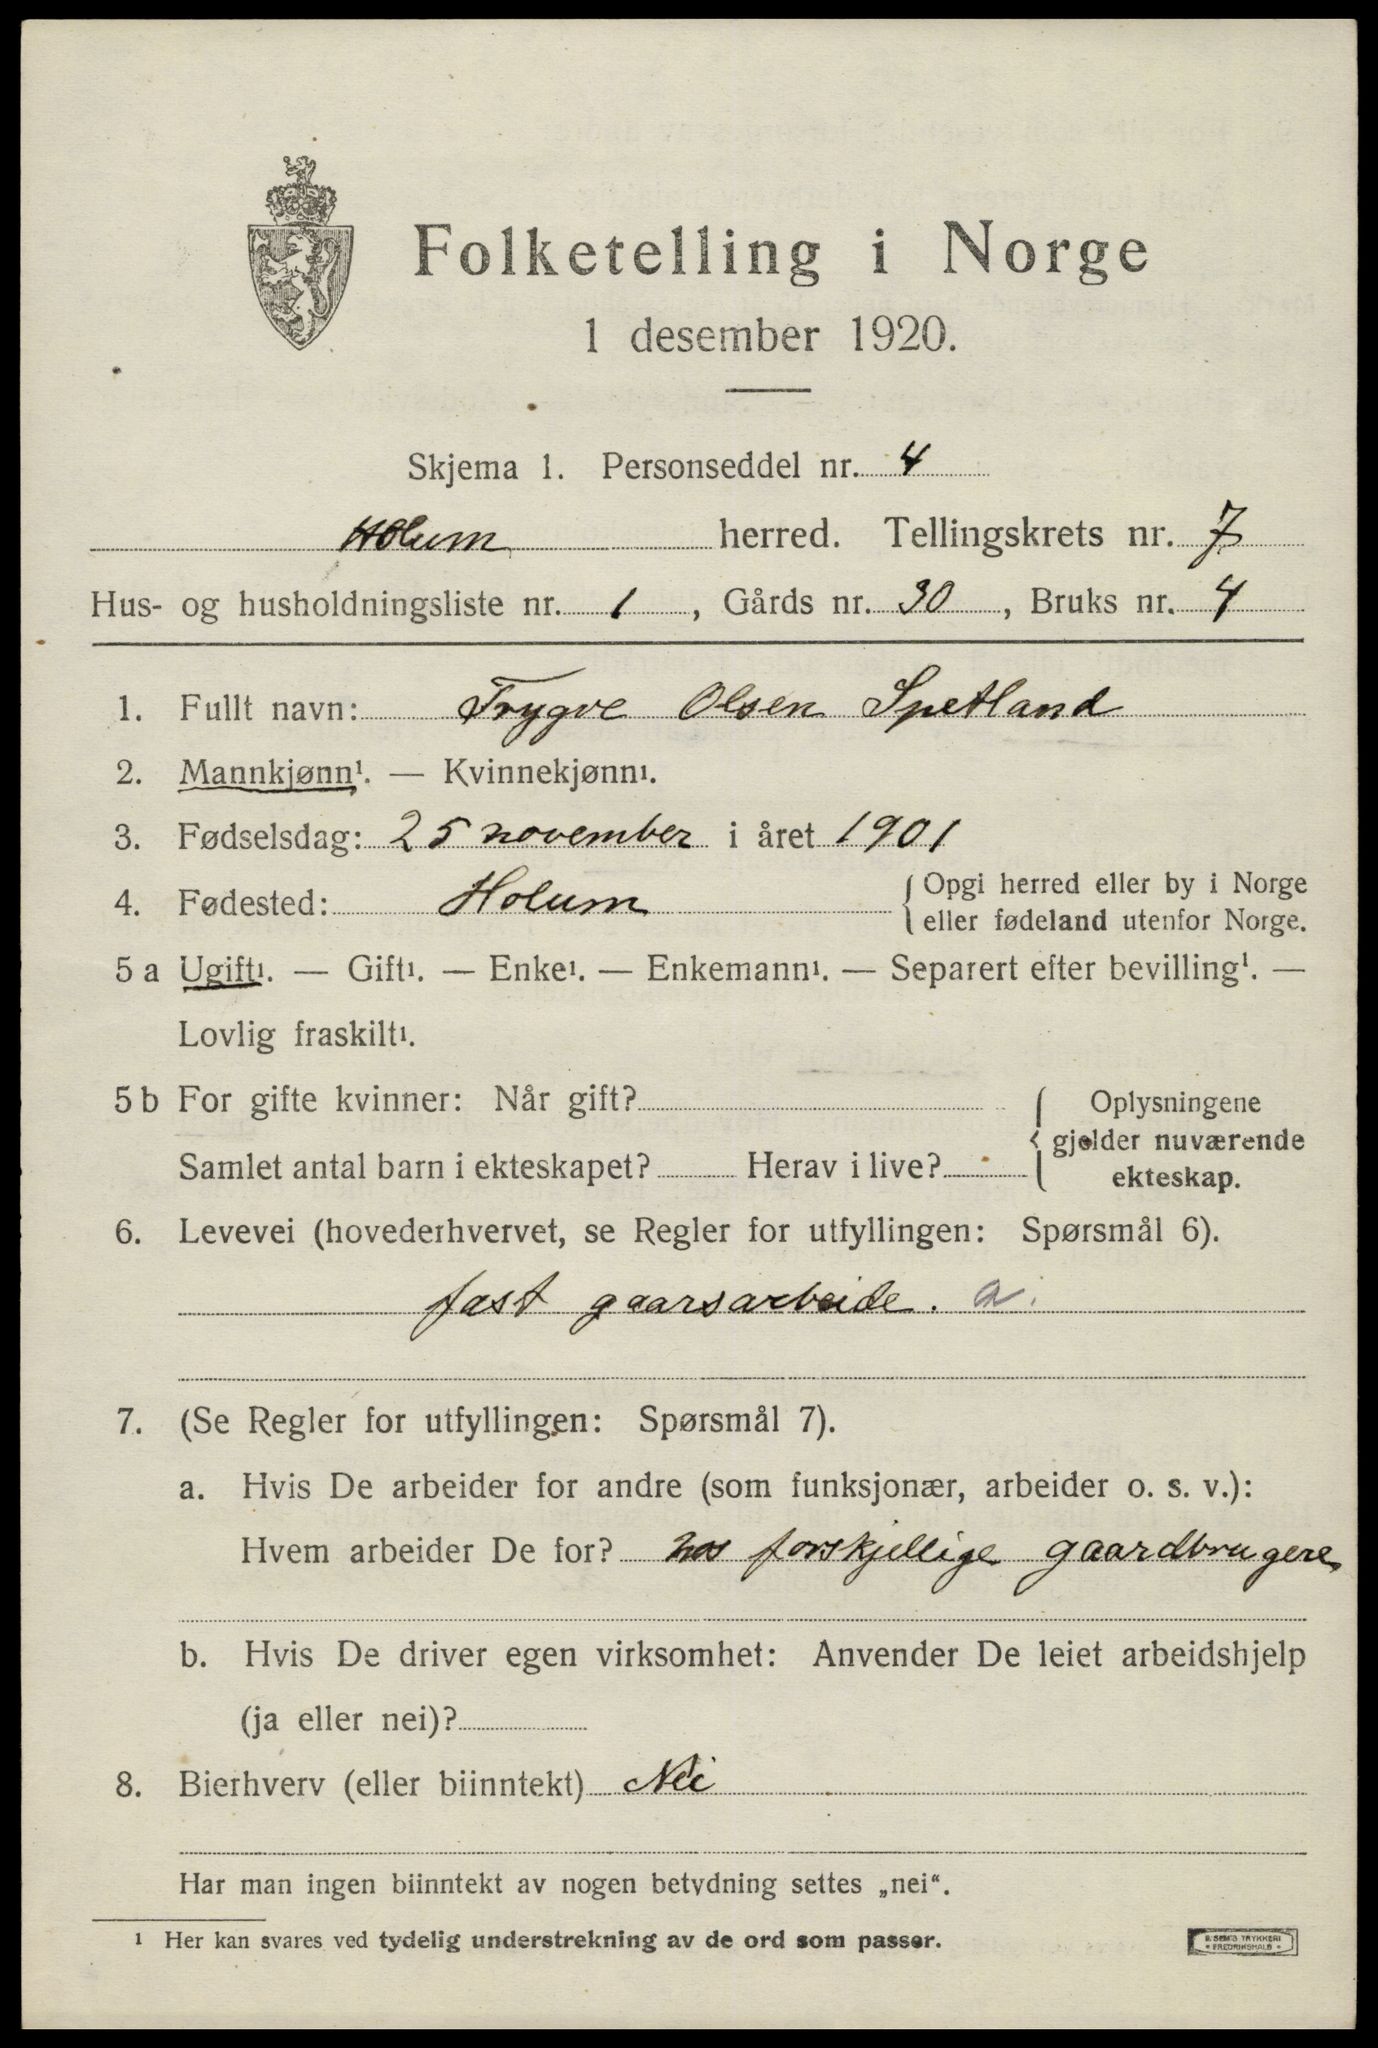 Folketelling i Norge
1 desember 1920.
Skjema 1. Personseddel nr. 4
Holum herred. Tellingskrets nr. 7
Hus- og husholdningsliste nr. 1, Gårds nr. 30, Bruks nr. 4
1. Fullt navn: Trygve Olsen Spetland
2. Mannkjønn¹. — Kvinnekjønn¹.
3. Fødselsdag: 25 november i året 1901
4. Fødested: Holum { Opgi herred eller by i Norge
eller fødeland utenfor Norge.
5 a Ugift¹. — Gift¹. — Enke¹. — Enkemann¹. — Separert efter bevilling¹. —
Lovlig fraskilt¹.
5 b For gifte kvinner: Når gift?
Samlet antal barn i ekteskapet? Herav i live?
{ Oplysningene
gjelder nuværende
ekteskap.
6. Levevei (hovederhvervet, se Regler for utfyllingen: Spørsmål 6).
fast gaarsarbeide. a.
7. (Se Regler for utfyllingen: Spørsmål 7).
a. Hvis De arbeider for andre (som funksjonær, arbeider o. s. v.):
Hvem arbeider De for? hos forskjellige gaardbrugere
b. Hvis De driver egen virksomhet: Anvender De leiet arbeidshjelp
(ja eller nei)?
8. Bierhverv (eller biinntekt) Nei
Har man ingen biinntekt av nogen betydning settes „nei“.
¹ Her kan svares ved tydelig understrekning av de ord som passer.
E. SEM'S TRYKKERI
• FREDRIKSHALD •